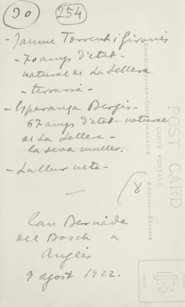 90 254
- Jaume Torrent i Gironès
- 70 anys d'etat -
natural de La Sellera
- terrassà -
- Esperança Bergés -
67 anys d'etat - natural
de La Sellera -
la seva muller.
- Lallur neta -
Can Bernada
del Bosch a
Anglès
9 agost 1922.
POST CARD